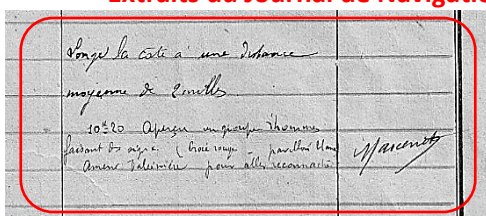 Extraits du Journal de Navigati
Longé la côte à une distance
moyenne de 2 milles
10h20 Aperçu un groupe d'hommes
faisant des signe (Croix rouge - pavillon blanc
Amené baleinière pour aller reconnaître